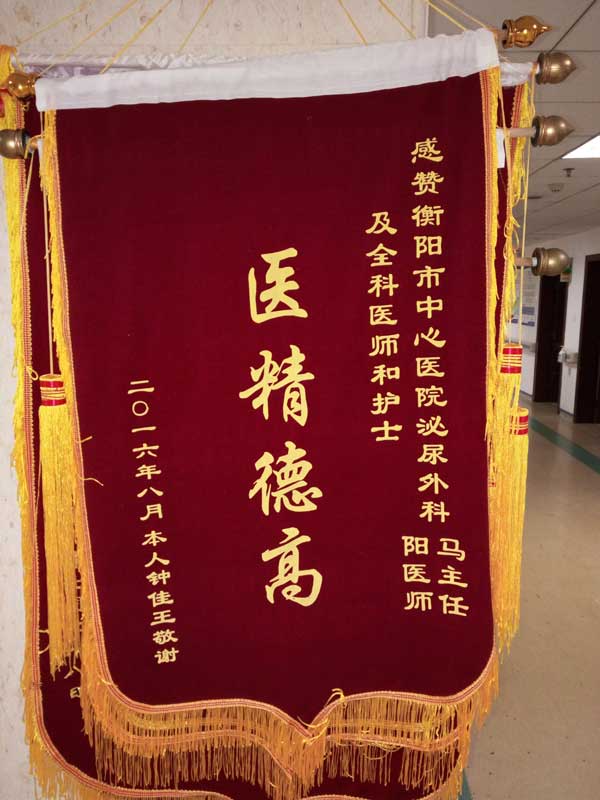 感赞衡阳市中心医院泌尿外科
马主任
阳医师
及全科医师和护士
医精德高
二〇一六年八月本人钟佳王敬谢